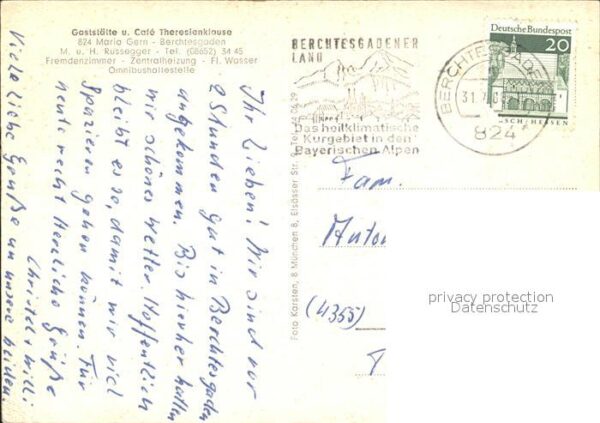 Gaststätte u. Café Theresienklause
824 Maria Gern - Berchtesgaden
M. u. H. Russegger - Tel. (08652) 34 45
Fremdenzimmer - Zentralheizung - Fl. Wasser
Omnibushaltestelle
Ihr Lieben! Wir sind vor
2 Stunden gut in Berchtesgaden
angekommen. Bis hierher hatten
wir schönes Wetter. Hoffentlich
bleibt es so, damit wir viel
Spazieren gehen können. Für
heute recht Herzliche Grüße
Christel + Willi
Viele liebe Grüße an unsere beiden.
Foto Karsten, 8 München 8, Elsässer Str. 9, Tel. 44 06 29
BERCHTESGADENER
LAND
Das heilklimatische
Kurgebiet in den
Bayerischen Alpen
BERCHTESGADEN
31.7.
824
Deutsche Bundespost
20
LORSCH/HESSEN
Fam.
Anton
(4355)
privacy protection
Datenschutz